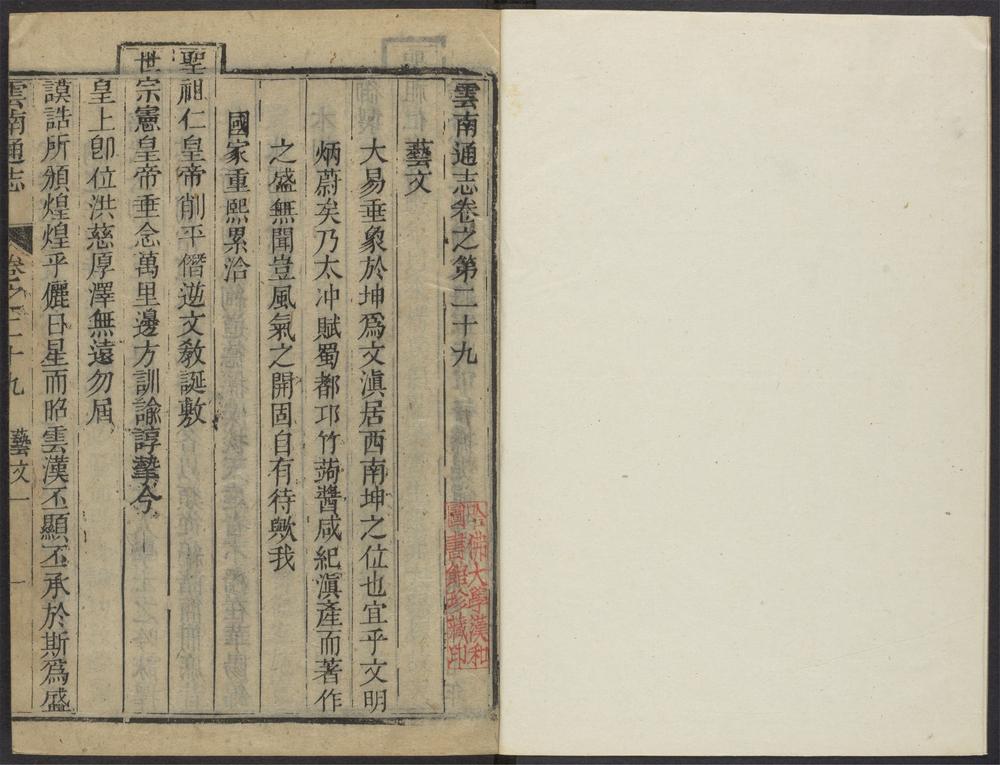 雲南通志卷之第二十九
哈佛大學漢和
圖書館珍藏印
藝文
大易垂象於坤爲文滇居西南坤之位也宜乎文明
炳蔚矣乃太冲賦蜀都邛竹蒟醬咸紀滇產而著作
之盛無聞豈風氣之開固自有待歟我
國家重熙累洽
聖祖仁皇帝削平僭逆文敎誕敷
世宗憲皇帝垂念萬里邊方訓諭諄摯今
皇上卽位洪慈厚澤無遠勿屆
謨誥所頒煌煌乎儷日星而昭雲漢丕顯丕承於斯爲盛
雲南通志 卷之二十九 藝文一 一